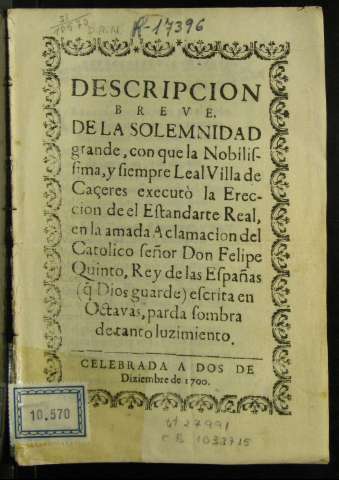 R-17396
DESCRIPCION
BREVE.
DE LA SOLEMNIDAD
grande, con que la Nobilis-
sima, y siempre Leal Villa de
Caçeres executò la Erec-
cion de el Estandarte Real,
en la amada Aclamacion del
Catolico señor Don Felipe
Quinto, Rey de las Españas
(q̃ Dios guarde) escrita en
Octavas, parda sombra
de tanto luzimiento.
CELEBRADA A DOS DE
Diziembre de 1700.
10.570
27991
1033715